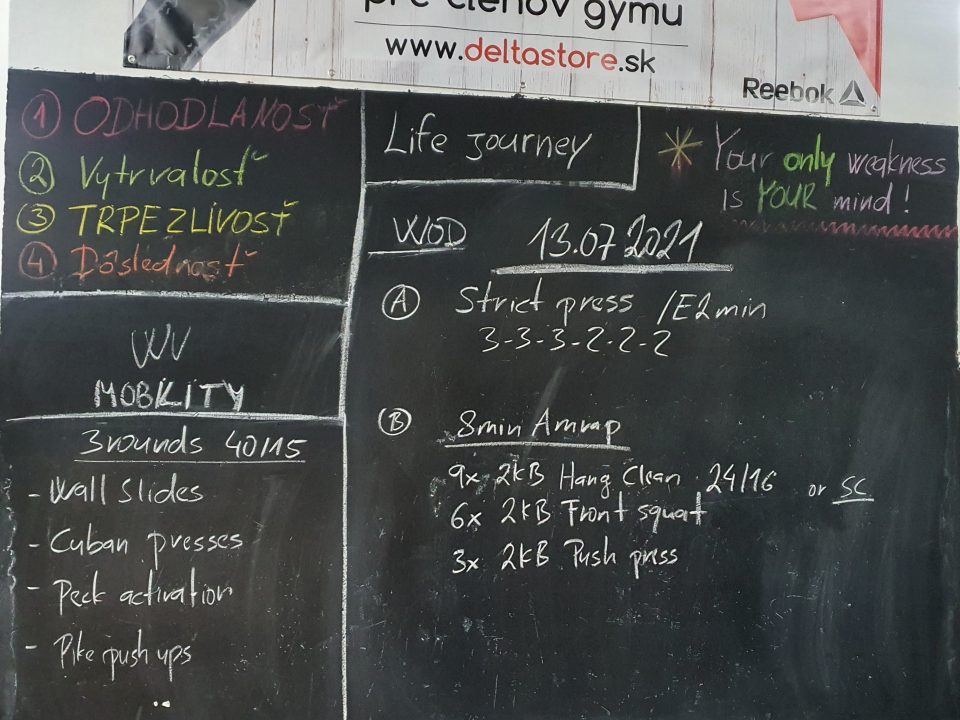 pre členov gymu
www.deltastore.sk
Reebok
1 ODHODLANOSŤ
2 Vytrvalosť
3 TRPEZLIVOSŤ
4 Dôslednosť
WV
MOBILITY
3rounds 40/15
- Wall Slides
- Cuban presses
- Peck activation
- Pike push ups
Life journey
* Your only weakness
is YOUR mind!
WOD 13.07 2021
A Strict press /E2min
3-3-3-2-2-2
B 8min Amrap
9x 2KB Hang Clean 24/16 or SC
6x 2KB Front squat
3x 2KB Push press